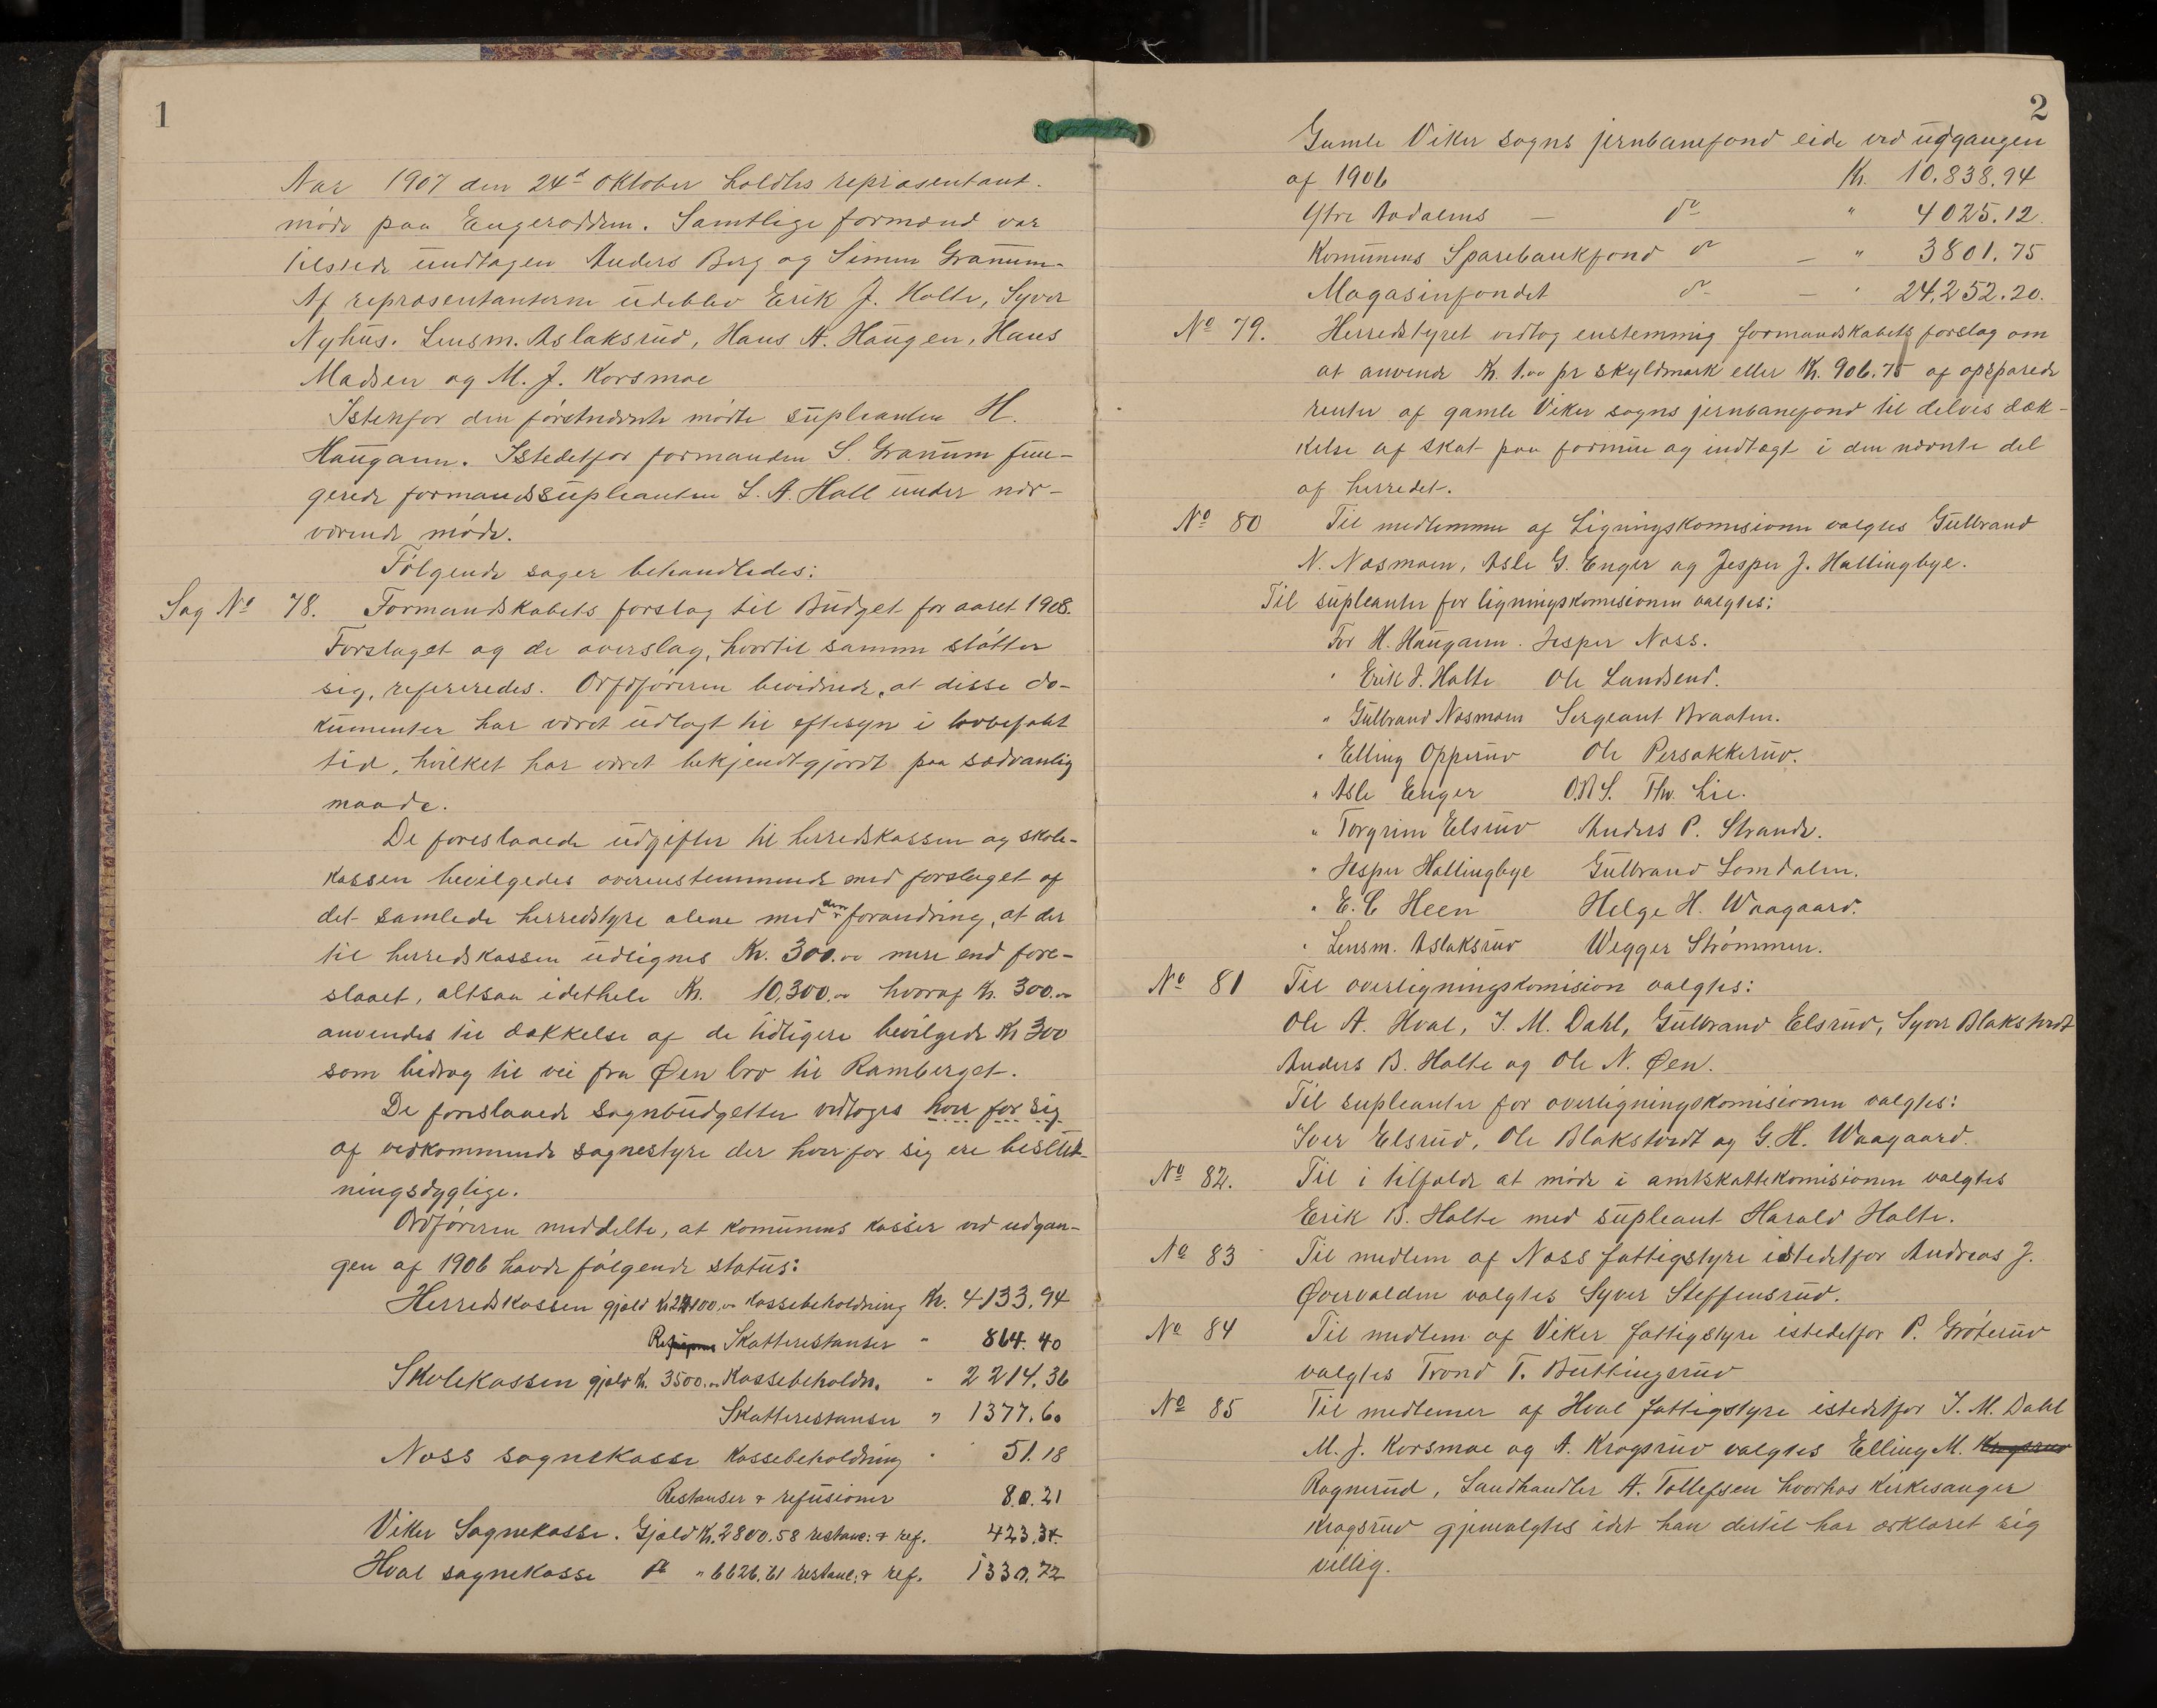 1
Aar 1907 den 24d Oktober holdtes repræsentant-
møde paa Engerodden. Samtlige formænd var
tilstede undtagen Anders Berg og Simen Granum.
Af repræsentanterne udeblev Erik J. Holte, Syver
Nyhus. Lensm. Aslaksrud, Hans A. Haugen, Hans
Madsen og M. J. Korsmoe
Istenfor den førstnævnte mødte supleanten H.
Haugann. Istedetfor formanden S. Granum fun-
gerede formandssupleanten L. A. Hall under nær-
værende møde.
Følgende sager behandledes:
Sag No 78. Formandskabets forslag til Budget for aaret 1908.
Forslaget og de overslag, hvortil samme støtter
sig, refereredes. Ordføreren bevidnede, at disse do-
kumenter har været udlagt til eftesyn i lovbefalt
tid, hvilket har været bekjendtgjordt paa sædvanlig
maade.
De foreslaaede udgifter til herredskassen og skole-
kassen bevilgedes overenstemmende med forslaget af
det samlede herredstyre alene med den forandring, at der
til herredskassen udlignes Kr. 300.00 mere end fore-
slaaet, altsaa idethele Kr. 10,300.00 hvoraf Kr. 300.00
anvendes til dækkelse af de tidligere bevilgede Kr 300
som bidrag til vei fra Øen bro til Ramberget.
De foreslaaede sognbudgetter vedtoges hver for sig
af vedkommende sognestyre der hver for sig ere beslut-
ningsdygtige.
Ordføreren meddelte, at komunens kasser ved udgan-
gen af 1906 havde følgende status:
Herredskassen gjæld Kr. 00.00 Kassebeholdning Kr. 4133.94
Skatterestanser " 864.40
Skolekassen gjæld Kr. 3500.00 Kassebeholdn. " 2214.36
Skatterestanser " 1377.60
Næss sognekasse Kassebeholdning " 51.18
Restanser & refusioner 80.21
Viker Sognekasse. Gjæld Kr. 2800.58 restanc: & ref. 423.34.
Hval sognekasse do " 6626.61 restanc: & ref. 1330.72
2
Gamle Viker sogns jernbanefond eide ved udgangen
af 1906 Kr. 10.838.94
Ytre Aadalens — do " 4025.12.
Komunens Sparebankfond do — " 3801.75
Magasinfondet do — " 24.252.20.
No 79. Herredstyret vedtog enstemmig formandskabets forslag om
at anvende Kr. 1.00 pr skyldmark eller Kr. 906.75 af opsparede
renter af gamle Viker sogns jernbanefond til delvis dæk-
kelse af skat paa formue og indtægt i den nævnte del
af herredet.
No 80 Til medlemmer af Ligningskomisionen valgtes Gulbrand
N. Næsmoen, Asle G. Enger og Jesper J. Hallingbye.
Til supleanter for ligningskomisionen valgtes:
For H. Haugann. Jesper Næss.
" Erik J. Holte Ole Landsend.
" Gulbrand Næsmoen Sergeant Braaten.
" Elling Opperud Ole Persakkerud.
" Asle Enger O.N.S. Thv. Lie.
" Torgrim Elsrud Anders P. Strande.
" Jesper Hallingbye Gulbrand Somdalen.
" E. C. Heen Helge H. Waagaard.
" Lensm. Aslaksrud Wegger Strømmen.
No 81 Til overligningskomision valgtes:
Ole A. Hval, J. M. Dahl, Gulbrand Elsrud, Syver Blakstvedt
Anders B. Holte og Ole N. Øen.
Til supleanter for overligningskomisionen valgtes:
Iver Elsrud, Ole Blakstvedt og G. H. Waagaard.
No 82. Til i tilfælde at møde i amtskattekomisionen valgtes
Erik B. Holte med supleant Harald Holte.
No 83 Til medlem af Næss fattigstyre istedetfor Andreas J.
Øvervolden valgtes Syver Steffensrud.
No 84 Til medlem af Viker fattigstyre istedetfor P. Grøterud
valgtes Trond T. Buttingsrud
No 85 Til medlemer af Hval fattigstyre istedetfor J. M. Dahl
M. J. Korsmoe og A. Krogsrud valgtes Elling M. Krogsrud
Rognerud, Landhandler A. Tollefsen hvorhos Kirkesanger
Krogsrud gjenvalgtes idet han dertil har erklæret sig
villig.